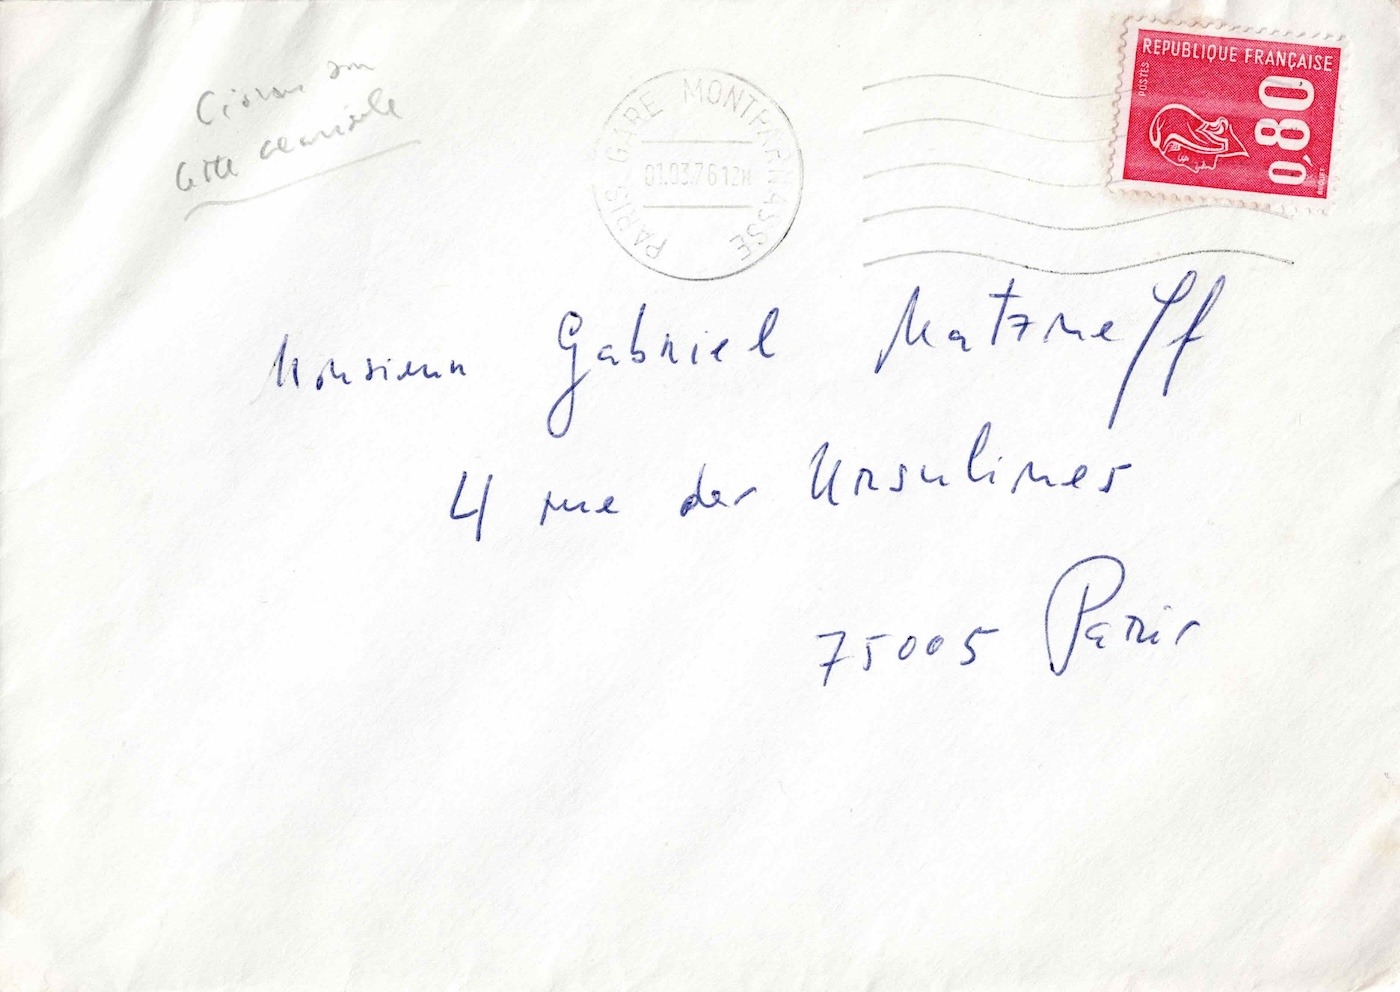 Cioran sur
cette
PARIS GARE MONTPARNASSE
01.03.76 12H
REPUBLIQUE FRANÇAISE
POSTES
0,80
Monsieur Gabriel Matzneff
4 rue des Ursulines
75005 Paris